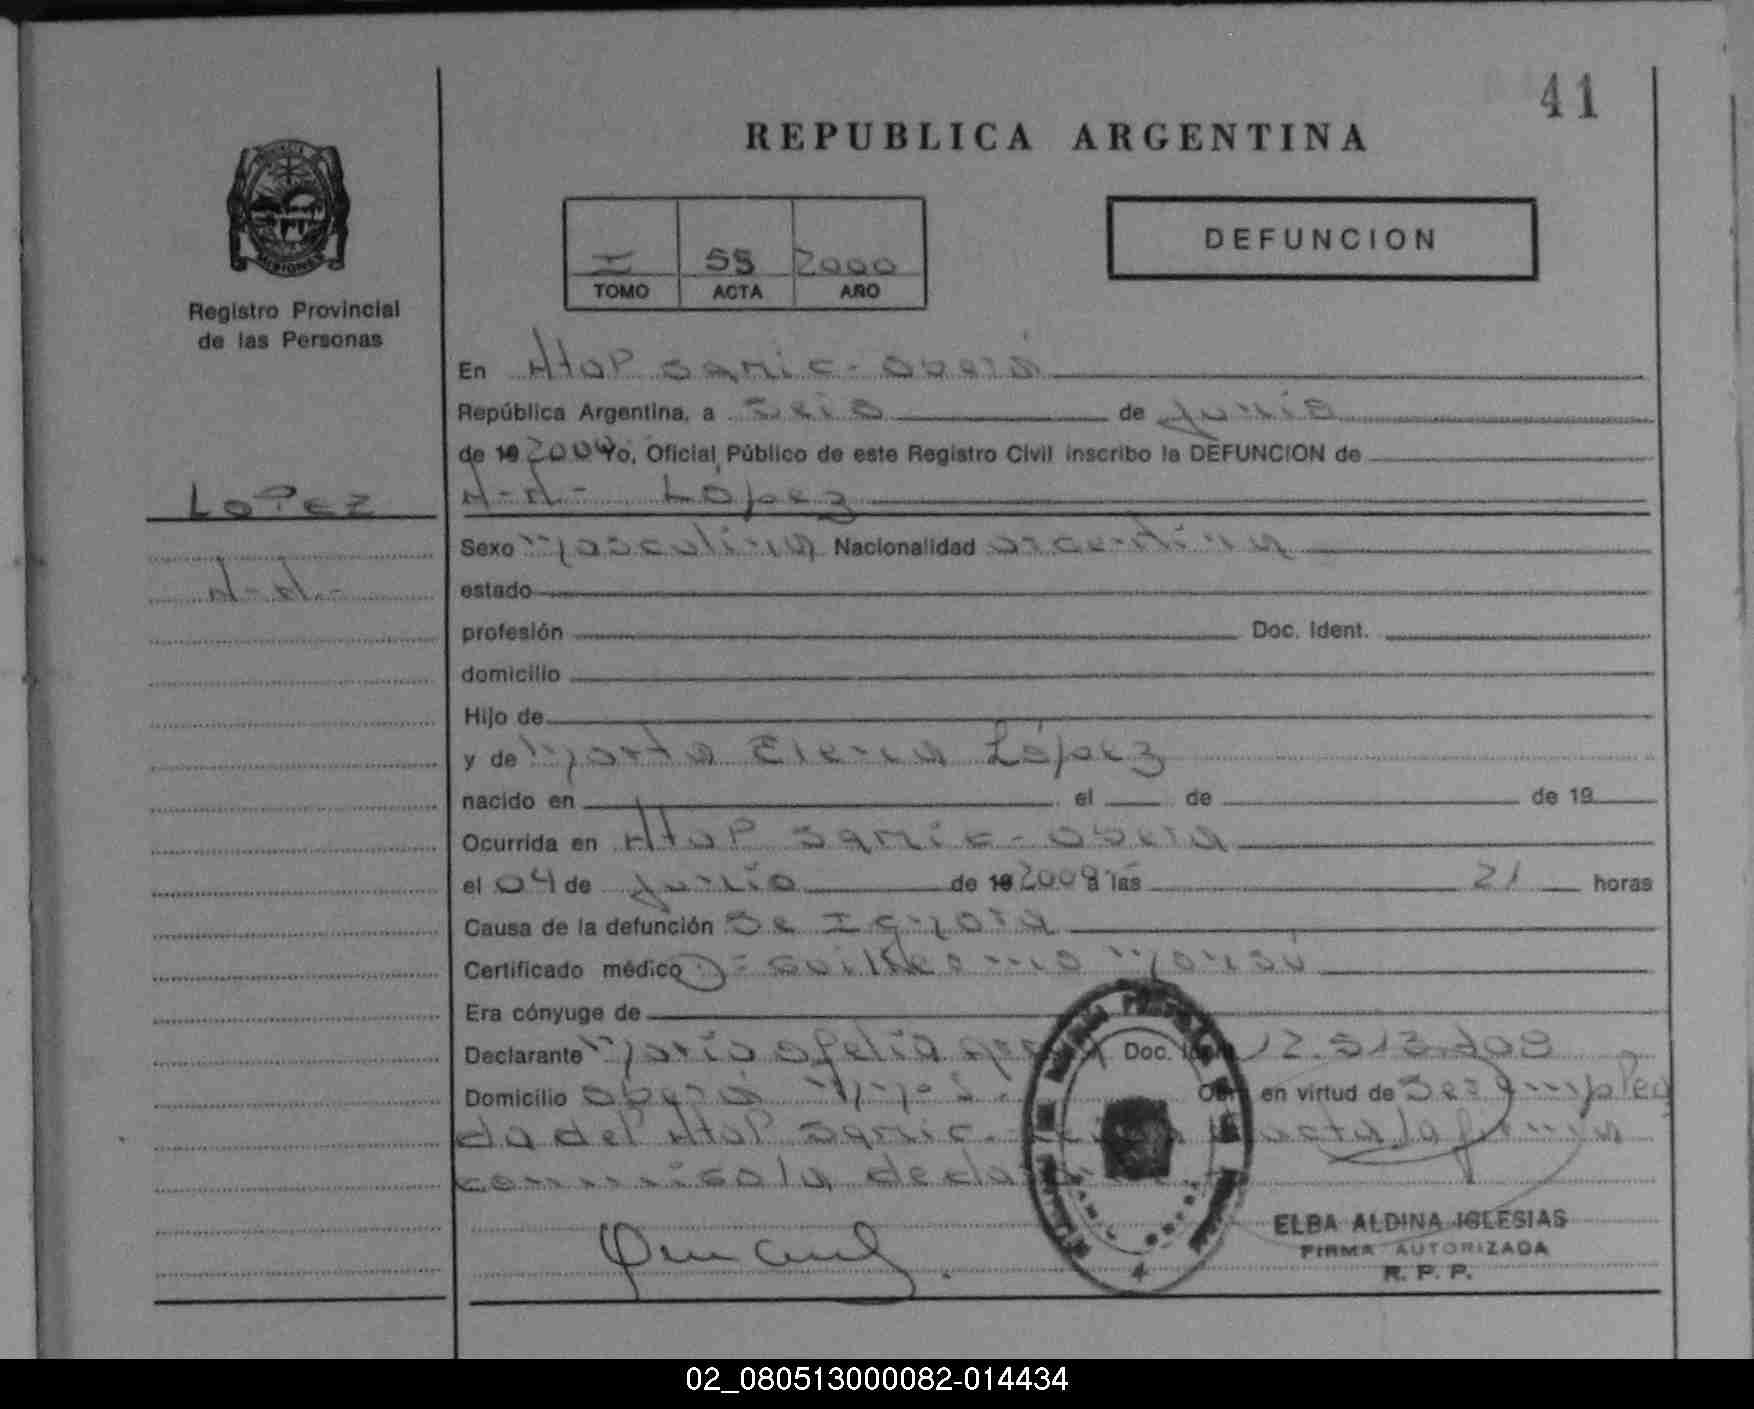 41
REPUBLICA ARGENTINA
MISIONES
Registro Provincial
de las Personas
I 55 2000
TOMO ACTA AÑO
DEFUNCION
En Htal Samic - Oberá
República Argentina, a seis de junio
de 19 2000 Yo, Oficial Público de este Registro Civil inscribo la DEFUNCION de
N-N- López
LoPez
N-N-
Sexo masculino Nacionalidad argentina
estado
profesión Doc. Ident.
domicilio
Hijo de
y de Marta Elena López
nacido en el de de 19
Ocurrida en Htal Samic - Oberá
el 04 de junio de 19 2000 a las 21 horas
Causa de la defunción Se Ignora
Certificado médico Dr Guillermo
Era cónyuge de
Declarante María Ofelia Doc. Ident.
Domicilio Oberá Mnes. Obr. en virtud de Ser emplea
da del Htal Samic. acta la firma
conmigo la
ELBA ALDINA IGLESIAS
FIRMA AUTORIZADA
R. P. P.
02_080513000082-014434